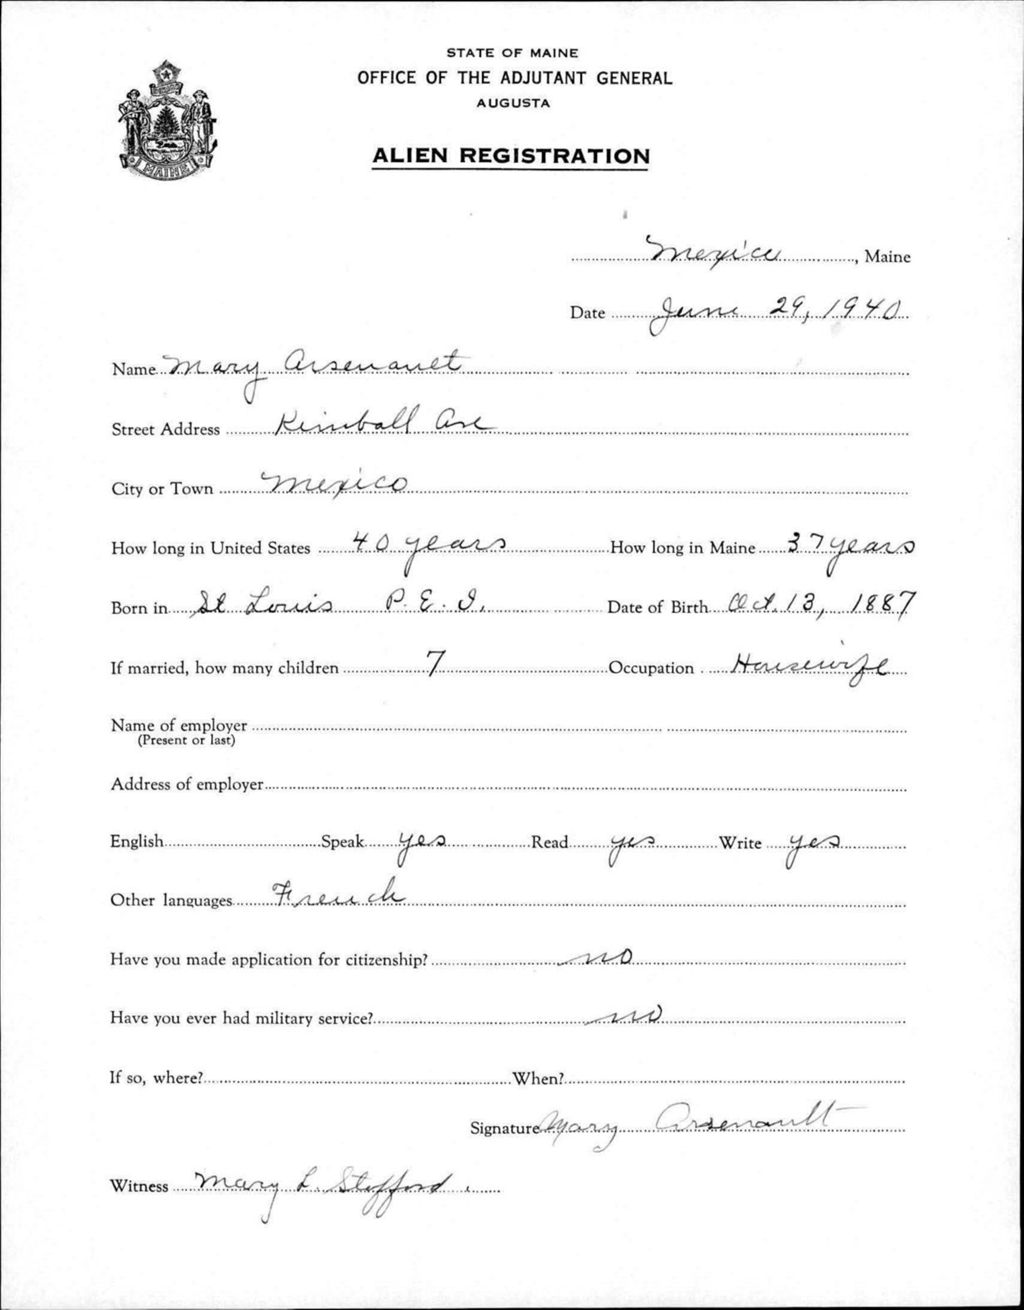 STATE OF MAINE
OFFICE OF THE ADJUTANT GENERAL
AUGUSTA
ALIEN REGISTRATION
MAINE
Mexico, Maine
Date June 29, 1940
Name Mary Arsenault
Street Address Kimball Ave
City or Town Mexico
How long in United States 40 years How long in Maine 37 years
Born in St Louis P. E. I. Date of Birth Oct. 13, 1887
If married, how many children 7 Occupation Housewife
Name of employer
(Present or last)
Address of employer
English Speak yes Read yes Write yes
Other languages French
Have you made application for citizenship? no
Have you ever had military service? no
If so, where? When?
Signature Mary Arsenault
Witness Mary L. Stafford.